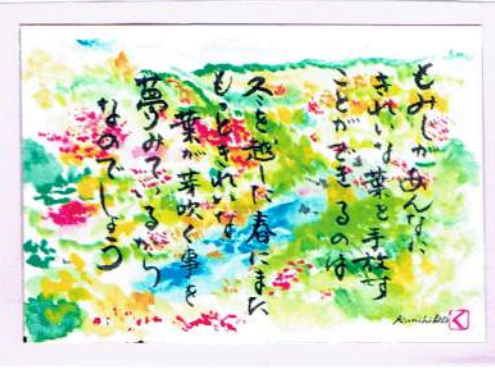 もみじがあんなに
きれいな葉を手放す
ことができるのは
冬を越した春にまた
もっときれいな
葉が芽吹く事を
夢みているから
なのでしょう
く